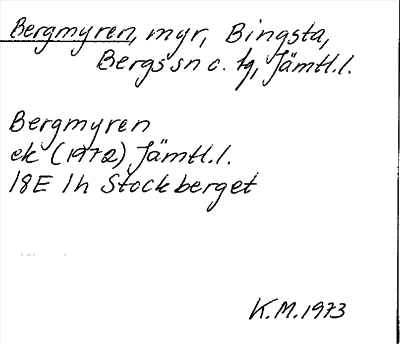 Bergmyren, myr, Bingsta,
Bergs sn o. tg, Jämtl.l.
Bergmyren
ek (1972) Jämtl.l.
18E 1h Stockberget
K.M.1973